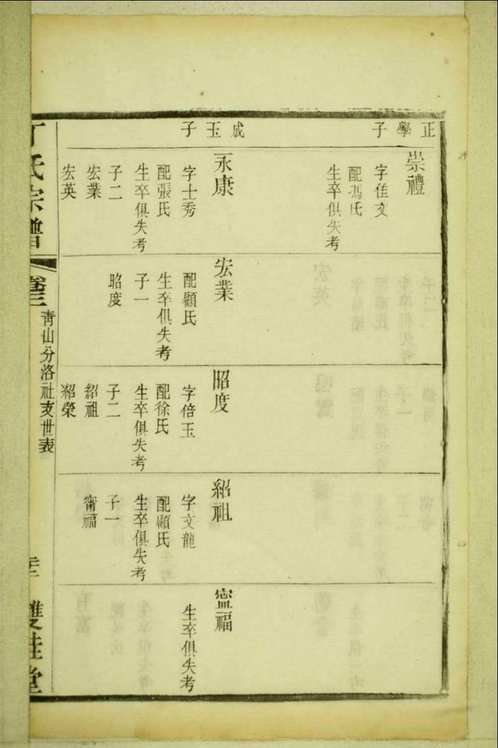 正學子
崇禮
字佳文
配馮氏
生卒俱失考
成玉子
永康
字士秀
配張氏
生卒俱失考
子二
宏業
宏英
宏業
配顧氏
生卒俱失考
子一
昭度
昭度
字倍玉
配徐氏
生卒俱失考
子二
紹祖
紹榮
紹祖
字文龍
配顧氏
生卒俱失考
子一
甯福
甯福
生卒俱失考
丁氏宗譜
卷三
青山分洛社支世表
雙桂堂